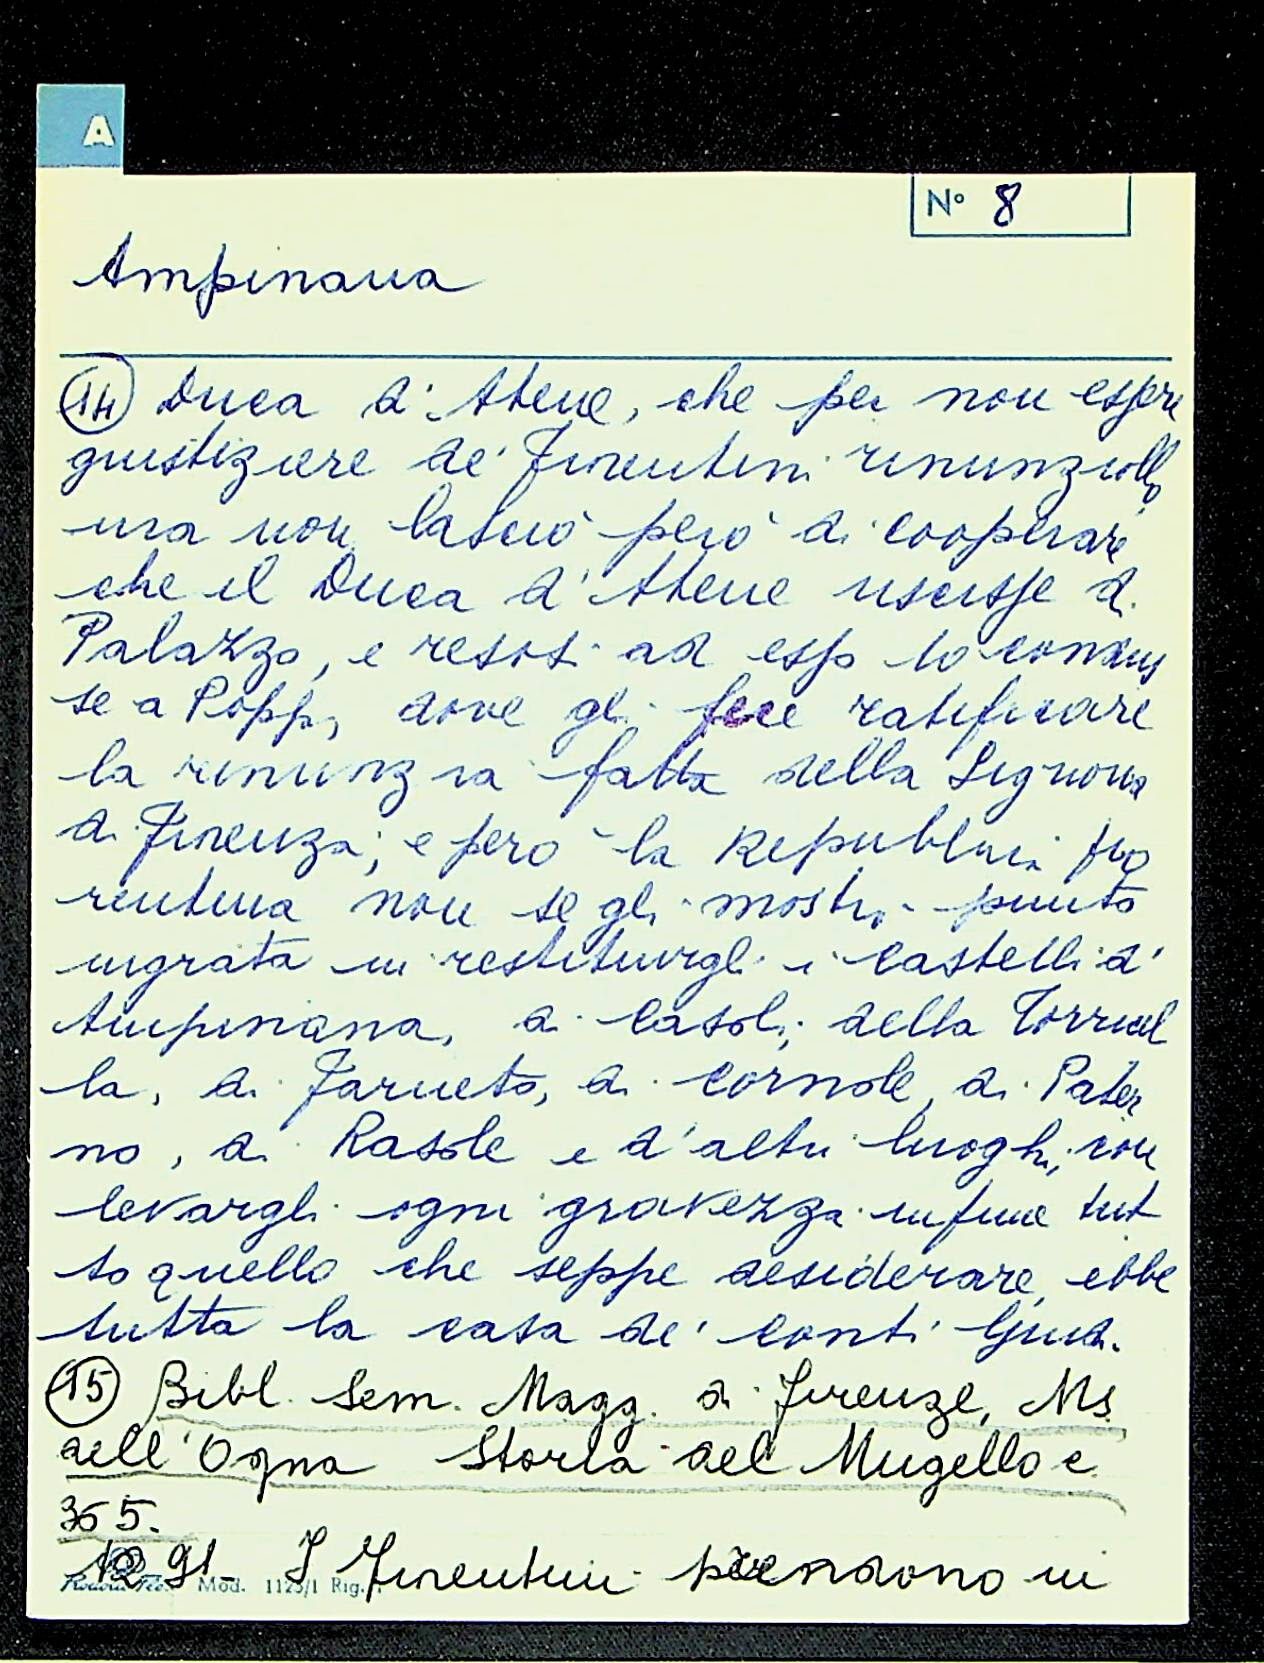 A
N° 8
Ampinana
(14) Duca d'Atene, che per non essere
giustiziere de' Fiorentini rinunziollo
ma non lasciò però di cooperare
che il Duca d'Atene uscisse di
Palazzo, e resosi ad esso lo condus
se a Poppi, dove gli fece ratificare
la rinunzia fatta della Signoria
di Firenza; e però la Republica fio
rentina non se gli mostrò punto
ingrata in restituirgli i Castelli d'
Ampinana, di Casoli, della Torricel
la, di Farneto, di Cornole, di Pater
no, di Rasole e d'altri luoghi, con
levargli ogni gravezza infine tut
to quello che seppe desiderare, ebbe
tutta la casa de' Conti Guidi.
(15) Bibl. Sem. Magg. di Firenze, Ms
dell'Ogna Storia del Mugello c.
365.
1291- I Fiorentini prendono in
Mod. 1125/1 Rig.